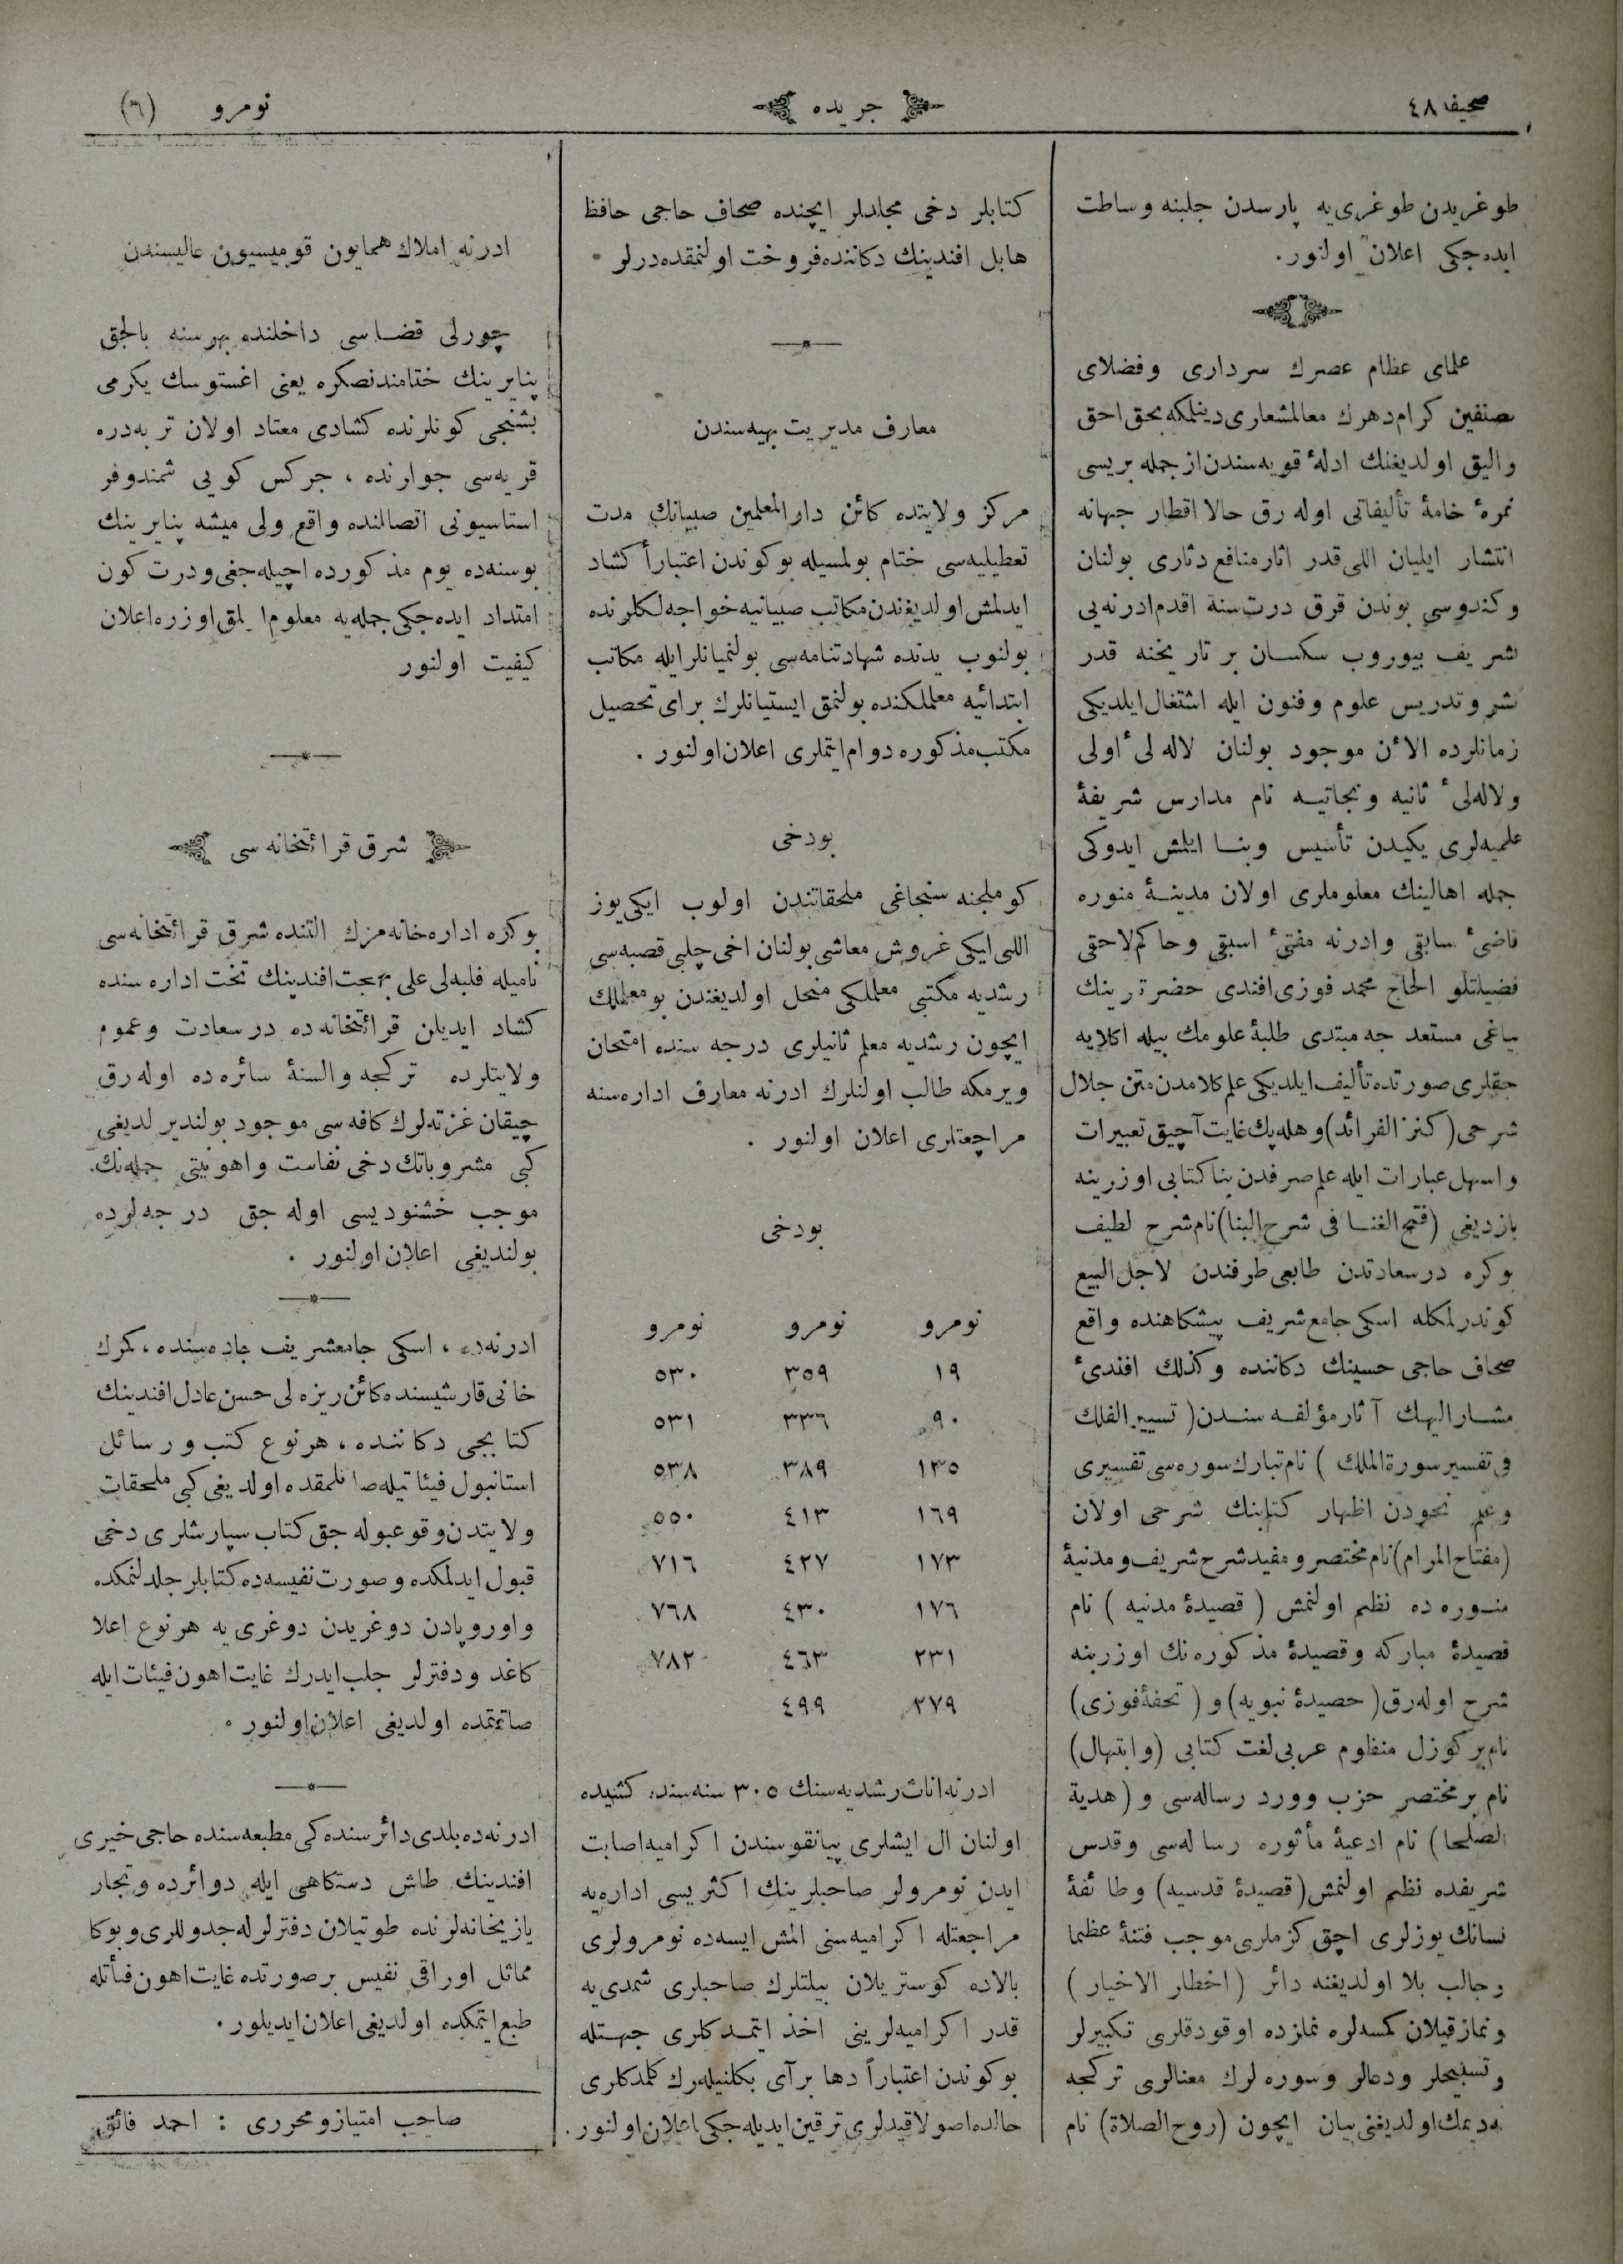 صحیفه ٤٨
جریده
نومرو (٦)
طوغریدن طوغری‌یه پارسدن جلبنه وساطت
ایده‌جکی اعلان اولنور.
علمای عظام عصرك سرداری وفضلای
مصنفین کرام دهرك معالمشعاری دینلمکه بحق احق
والیق اولدیغنك ادلهٔ قویه‌سندن از جمله بریسی
ثمرهٔ خامهٔ تألیفاتی اوله‌رق حالا اقطار جهانه
انتشار ایلیان اللی قدر اثار منافع دثاری بولنان
وکندوسی بوندن قرق درت سنه اقدم ادرنه‌یی
شریف بیوروب سکسان بر تاریخنه قدر
نشر وتدریس علوم وفنون ایله اشتغال ایلدیکی
زمانلرده الاٴن موجود بولنان لاله‌لیٔ اولی
ولاله‌لیٔ ثانیه ونجاتیه نام مدارس شریفهٔ
علمیه‌لری یکیدن تأسیس وبنا ایلمش ایدوکی
جمله اهالینك معلوملری اولان مدینهٔ منوره
قاضیٔ سابقی وادرنه مفتیٔ اسبقی وحاکم لاحقی
فضیلتلو الحاج محمد فوزی افندی حضرترینك
مستعد جه مبتدی طلبهٔ علومك بیله اکلایه
جقلری صورتده تألیف ایلدیکی علم کلامدن متن جلال
شرحی (کنز الفرائد) وهله پك غایت آچیق تعبیرات
واسهل عبارات ایله علم صرفدن بنا کتابی اوزرینه
یازدیغی (فتح الغنا فی شرح البنا) نام شرح لطیف
بوکره درسعادتدن طابعی طرفندن لاجل البیع
کوندرلمکله اسکی جامع شریف پیشکاهنده واقع
صحاف حاجی حسینك دکاننده وکذلك افندیٔ
مشارالیهك آثار مؤلفه سندن (تسییر الفلك
فی تفسیر سورة الملك) نام تبارك سوره‌سی تفسیری
وعلم نحودن اظهار کتابنك شرحی اولان
(مفتاح المرام) نام مختصر ومفید شرح شریف ومدنیهٔ
منوره ده نظم اولنمش (قصیدهٔ مدنیه) نام
قصیدهٔ مبارکه وقصیدهٔ مذکوره‌نك اوزرینه
شرح اوله‌رق (حصیدهٔ نبویه) و (تحفهٔ فوزی)
نام بر کوزل منظوم عربی لغت کتابی (وابتهال)
نام بر مختصر حزب وورد رساله‌سی و (هدیة
الصلحا) نام ادعیهٔ مأثوره رساله‌سی وقدس
شریفده نظم اولنمش (قصیدهٔ قدسیه) وطائفهٔ
نسانك یوزلری اچق کزملری موجب فتنهٔ عظما
وجالب بلا اولدیغنه دائر (اخطار الاخیار)
ونماز قیلان کمسه‌لره نمازده اوقودقلری تکبیرلر
وتسبیحلر ودعالر وسوره‌لرك معنالری ترکجه
نه‌دیمك اولدیغنی بیان ایچون (روح الصلاة) نام
کتابلر دخی مجلدلر ایچنده صحاف حاجی حافظ
هابل افندینك دکاننده فروخت اولنمقده‌درلر
معارف مدیریت بهیه‌سندن
مرکز ولایتده کائن دار المعلمین صبیانك مدت
تعطیلیه‌سی ختام بولمسیله بوکوندن اعتباراً کشاد
ایدلمش اولدیغندن مکاتب صبیانیه خواجه‌لکلرنده
بولنوب یدنده شهادتنامه‌سی بولنمیانلر ایله مکاتب
ابتدائیه معلملکنده بولنمق ایستیانلرك برای تحصیل
مکتب مذکوره دوام ایتملری اعلان اولنور .
بودخی
کوملجنه سنجاغی ملحقاتندن اولوب ایکی‌یوز
اللی ایکی غروش معاشی بولنان اخی چلبی قصبه‌سی
رشدیه مکتبی معلملکی منحل اولدیغندن بو معلملك
ایچون رشدیه معلم ثانیلری درجه سنده امتحان
ویرمکه طالب اولنلرك ادرنه معارف اداره‌سنه
مراجعتلری اعلان اولنور .
بودخی
نومرو نومرو نومرو
١٩ ٣٥٩ ٥٣٠
٩٠ ٣٣٦ ٥٣١
١٣٥ ٣٨٩ ٥٣٨
١٦٩ ٤١٣ ٥٥٠
١٧٣ ٤٢٧ ٧١٦
١٧٦ ٤٣٠ ٧٦٨
٢٣١ ٤٦٣ ٧٨٢
٢٧٩ ٤٩٩
ادرنه اناث رشدیه‌سنك ٣٠٥ سنه‌سنده کشیده
اولنان ال ایشلری پیانقوسندن اکرامیه اصابت
ایدن نومرولر صاحبلرینك اکثریسی اداره‌یه
مراجعتله اکرامیه‌سنی المش ایسه‌ده نومرولری
بالاده کوستریلان بیلتلرك صاحبلری شمدی‌یه
قدر اکرامیه‌لرینی اخذ ایتمدکلری جهتله
بوکوندن اعتباراً دها بر آی بکلنیله‌رك کلمدکلری
حالده اصولا قیدلری ترقین ایدیله‌جکی اعلان اولنور.
ادرنه املاك همایون قومیسیون عالیسندن
چورلی قضاسی داخلنده بهرسنه بالجق
پنایرینك ختامندنصکره یعنی اغستوسك یکرمی
بشنجی کونلرنده کشادی معتاد اولان تربه‌دره
قریه‌سی جوارنده ، چرکس کویی شمندوفر
استاسیونی اتصالنده واقع ولی میشه پنایرینك
بوسنه‌ده یوم مذکورده اچیله‌جغی ودرت کون
امتداد ایده‌جکی جمله‌یه معلوم اولمق اوزره اعلان
کیفیت اولنور
شرق قرائتخانه سی
بوکره اداره‌خانه‌مزك التنده شرق قرائتخانه‌سی
نامیله فلبه‌لی علی بهجت افندینك تحت اداره سنده
کشاد ایدیلن قرائتخانه‌ده درسعادت وعموم
ولایتلرده ترکجه والسنهٔ سائره‌ده اوله‌رق
چیقان غزته‌لرك کافه‌سی موجود بولندیرلدیغی
کبی مشروباتك دخی نفاست واهونیتی جمله‌نك
موجب خشنودیسی اوله‌جق درجه‌لرده
بولندیغی اعلان اولنور .
ادرنه‌ده ، اسکی جامعشریف جاده‌سنده ، کمرك
خانی قارشیسنده کائن ریزه‌لی حسن عادل افندینك
کتابجی دکاننده ، هرنوع کتب ورسائل
استانبول فیئاتیله صاتلمقده اولدیغی کبی ملحقات
ولایتدن وقوعبوله‌جق کتاب سپارشلری دخی
قبول ایدلمکده وصورت نفیسه‌ده کتابلر جلدلنمکده
واوروپادن دوغریدن دوغری‌یه هرنوع اعلا
کاغد ودفترلر جلب ایدرك غایت اهون فیئات ایله
صاتمقده اولدیغی اعلان اولنور .
ادرنه‌ده بلدی دائرسنده‌کی مطبعه‌سنده حاجی خیری
افندینك طاش دستکاهی ایله دوائرده وتجار
یازیخانه‌لرنده طوتیلان دفترلرله جدوللری وبوکا
مماثل اوراقی نفیس برصورتده غایت اهون فیأتله
طبع ایتمکده اولدیغی اعلان ایدیلور.
صاحب امتیاز ومحرری : احمد فائق